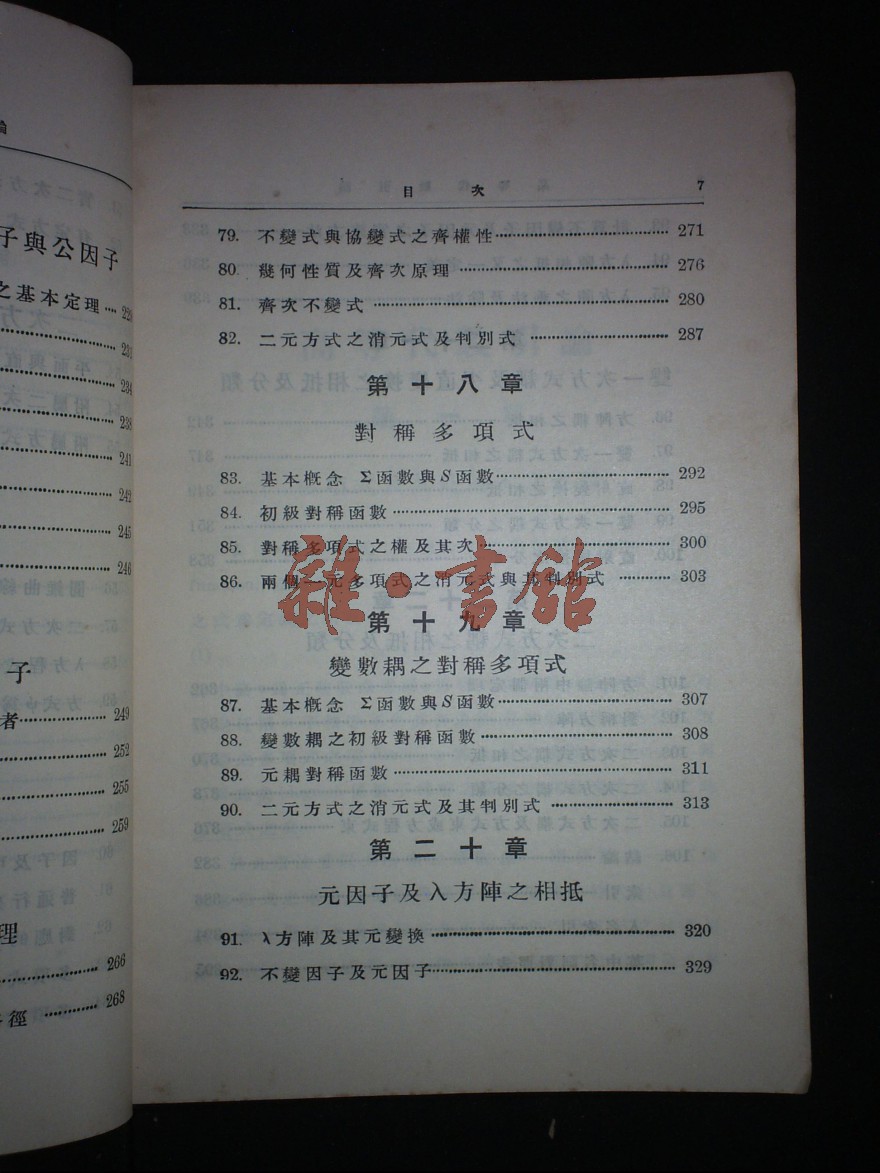 論
子與公因子
之基本定理
234
238
241
242
245
246
子
者 249
252
255
259
理
266
徑 268
目 次 7
79. 不變式與協變式之齊權性 271
80. 幾何性質及齊次原理 276
81. 齊次不變式 280
82. 二元方式之消元式及判別式 287
第十八章
對稱多項式
83. 基本概念 Σ函數與S函數 292
84. 初級對稱函數 295
85. 對稱多項式之權及其次 300
86. 兩個一元多項式之消元式與其判別式 303
雜·書館
第十九章
變數耦之對稱多項式
87. 基本概念 Σ函數與S函數 307
88. 變數耦之初級對稱函數 308
89. 元耦對稱函數 311
90. 二元方式之消元式及其判別式 313
第二十章
元因子及λ方陣之相抵
91. λ方陣及其元變換 320
92. 不變因子及元因子 329